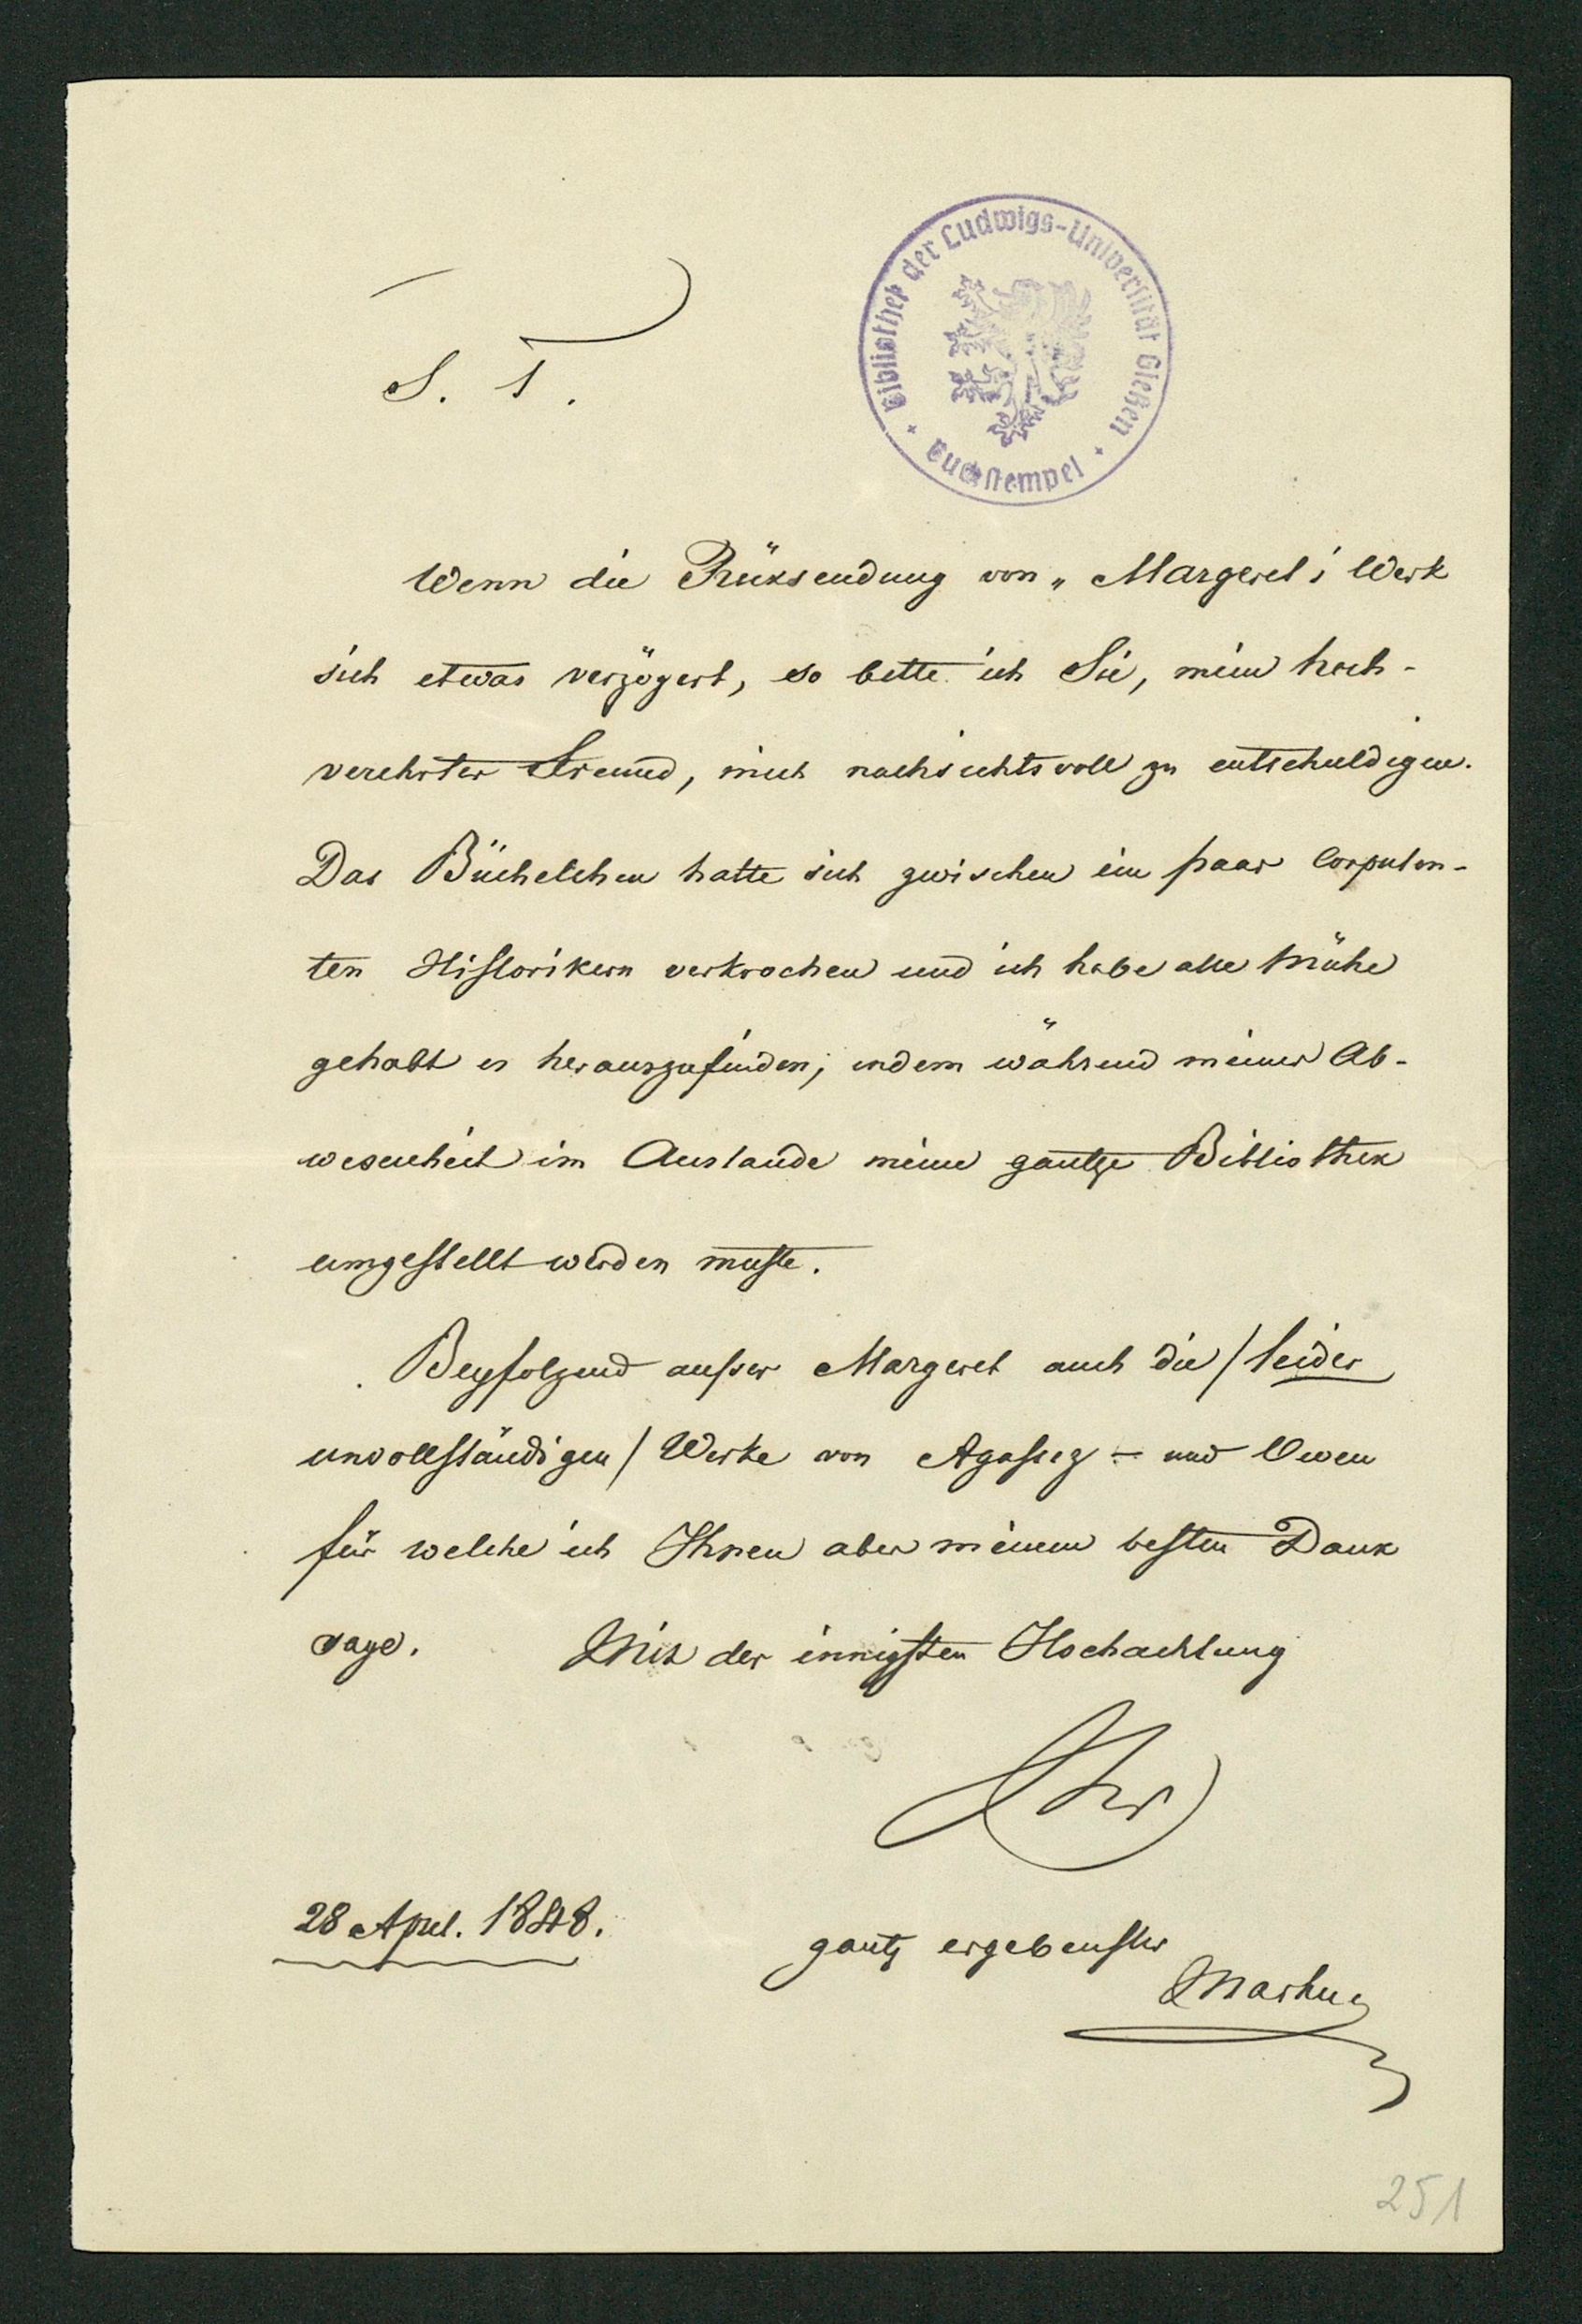 Bibliothek der Ludwigs-Universität Gießen
Buchstempel
S. T.
Wenn die Rüksendung von „Margeret's Werk
sich etwas verzögert, so bitte ich Sie, mein hoch-
verehrter Freund, mich nachsichtsvoll zu entschuldigen.
Das Büchelchen hatte sich zwischen ein paar Corpulen-
ten Historikern verkrochen und ich habe alle Mühe
gehabt es herauszufinden; indem während meiner Ab-
wesenheit im Auslande meine gantze Bibliothek
umgestellt werden muste.
Beyfolgend ausser Margeret auch die / leider
unvollständigen / Werke von Agassiz – und Owen
für welche ich Ihnen aber meinen besten Dank
sage. Mit der innigsten Hochachtung
Ihr
28 April. 1848.
gantz ergebenster
251